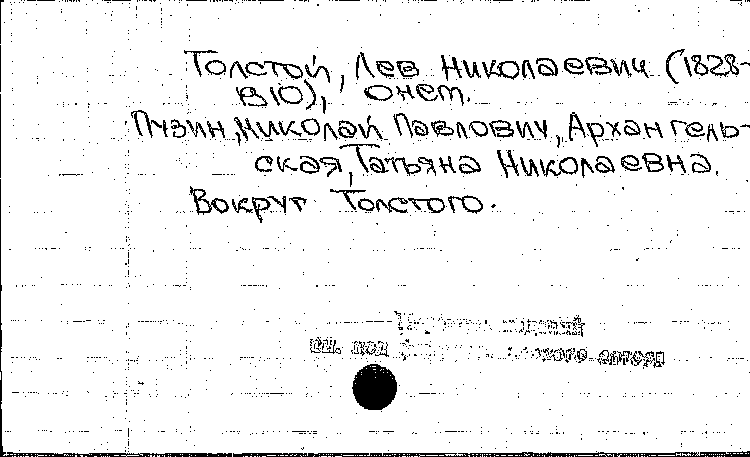 Толстой, Лев Николаевич (1828-
1910), о нем.
Пузин, Николай Павлович, Архангель-
ская, Татьяна Николаевна.
Вокруг Толстого.
см. под
автора